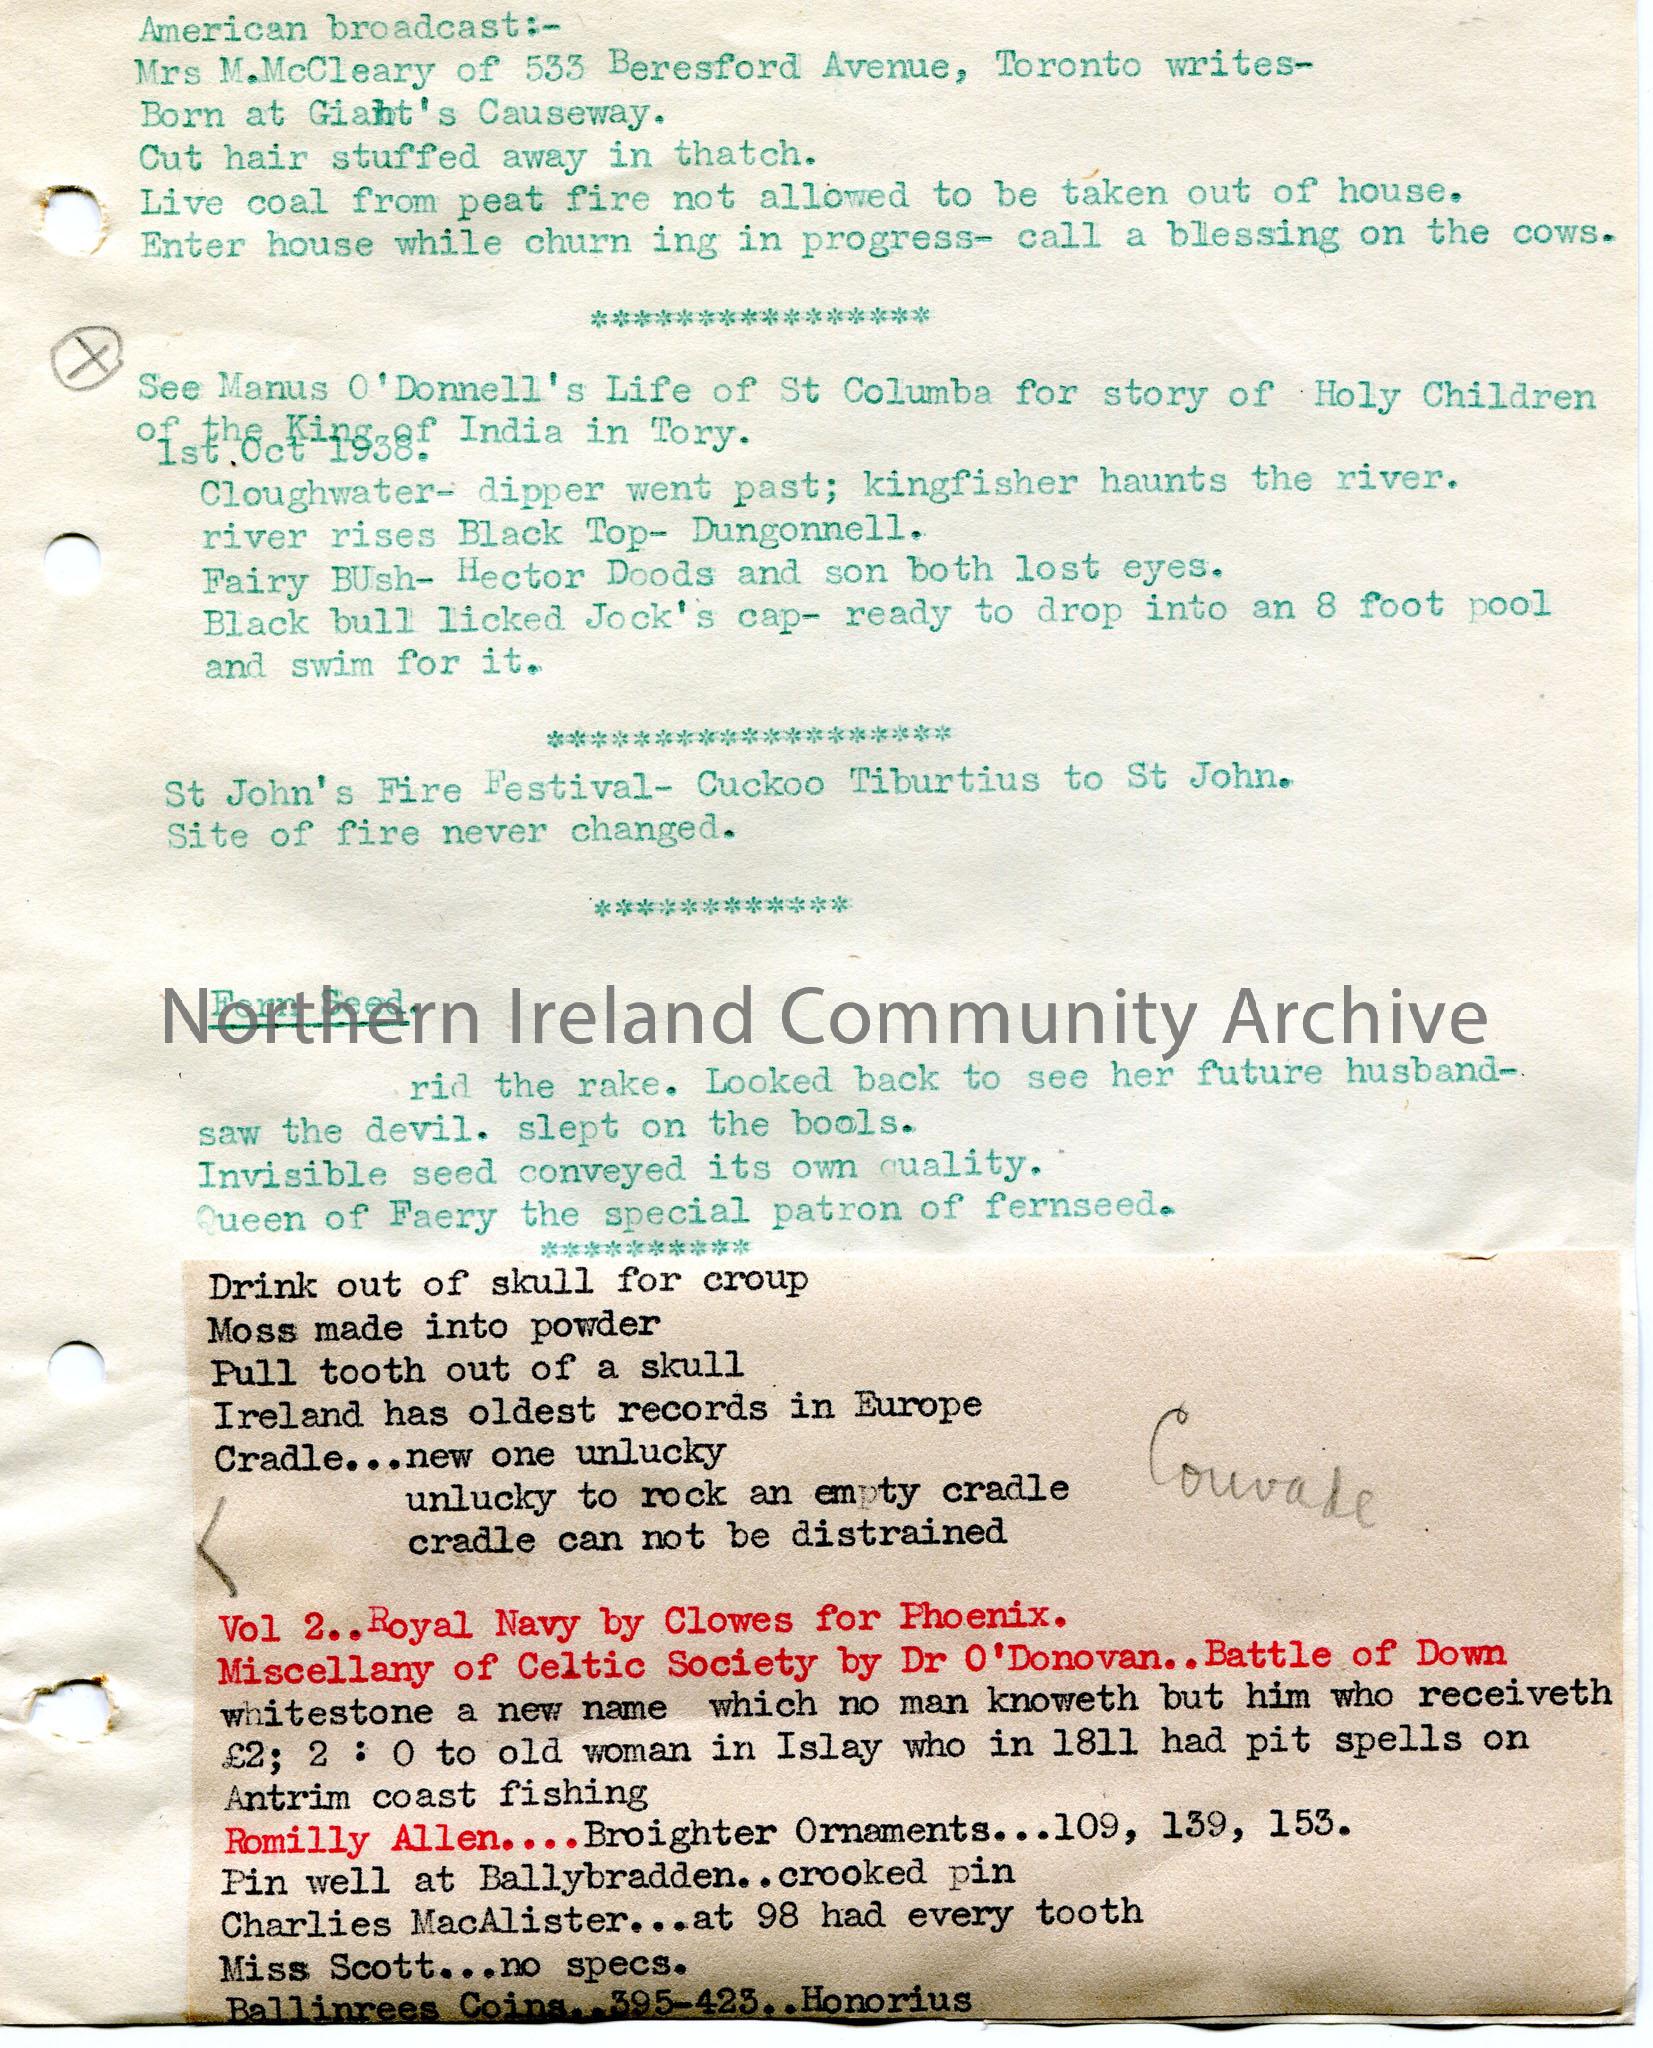 American broadcast:-
Mrs M.McCleary of 533 Beresford Avenue, Toronto writes-
Born at Giaht's Causeway.
Cut hair stuffed away in thatch.
Live coal from peat fire not allowed to be taken out of house.
Enter house while churn ing in progress- call a blessing on the cows.
****************
X
See Manus O'Donnell's Life of St Columba for story of Holy Children
of the King of India in Tory.
1st Oct 1938.
Cloughwater- dipper went past; kingfisher haunts the river.
river rises Black Top- Dungonnell.
Fairy BUsh- Hector Doods and son both lost eyes.
Black bull licked Jock's cap- ready to drop into an 8 foot pool
and swim for it.
*******************
St John's Fire Festival- Cuckoo Tiburtius to St John.
Site of fire never changed.
************
Fern Seed.
Northern Ireland Community Archive
rid the rake. Looked back to see her future husband-
saw the devil. slept on the bools.
Invisible seed conveyed its own quality.
Queen of Faery the special patron of fernseed.
**********
Drink out of skull for croup
Moss made into powder
Pull tooth out of a skull
Ireland has oldest records in Europe
Cradle...new one unlucky
unlucky to rock an empty cradle
Couvade
cradle can not be distrained
Vol 2..Royal Navy by Clowes for Phoenix.
Miscellany of Celtic Society by Dr O'Donovan..Battle of Down
whitestone a new name which no man knoweth but him who receiveth
£2; 2 : 0 to old woman in Islay who in 1811 had pit spells on
Antrim coast fishing
Romilly Allen....Broighter Ornaments...109, 139, 153.
Pin well at Ballybradden..crooked pin
Charlies MacAlister...at 98 had every tooth
Miss Scott...no specs.
Ballinrees Coins..395-423..Honorius